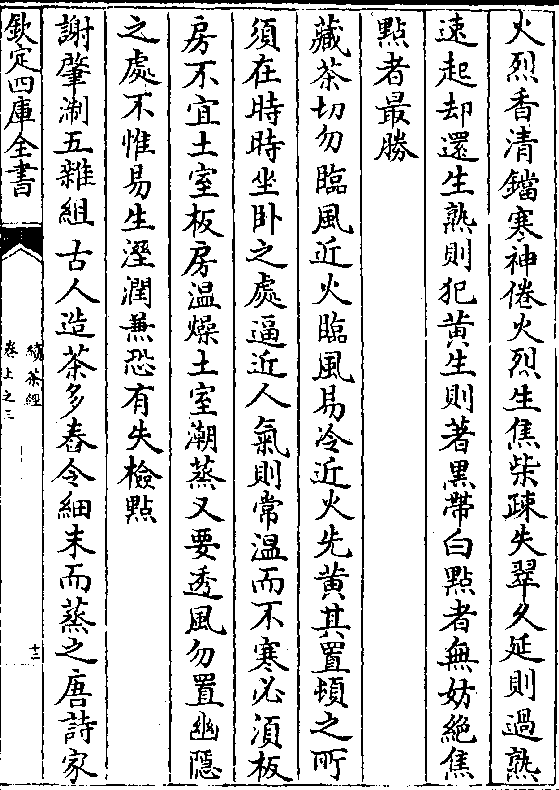 火烈香清鐺寒神倦火烈生焦柴疎失翠久延則過熟
速起却還生熟則犯黄生則著黑帶白點者無妨絶焦
點者最勝
藏茶切勿臨風近火臨風易冷近火先黄其置頓之所
須在時時坐卧之處逼近人氣則常温而不寒必須板
房不宜土室板房温燥土室潮蒸又要透風勿置幽隱
之處不惟易生溼潤兼恐有失檢點
謝肇淛五雜組古人造茶多舂令細末而蒸之唐詩家
欽定四庫全書
續茶經
卷上之三
十二